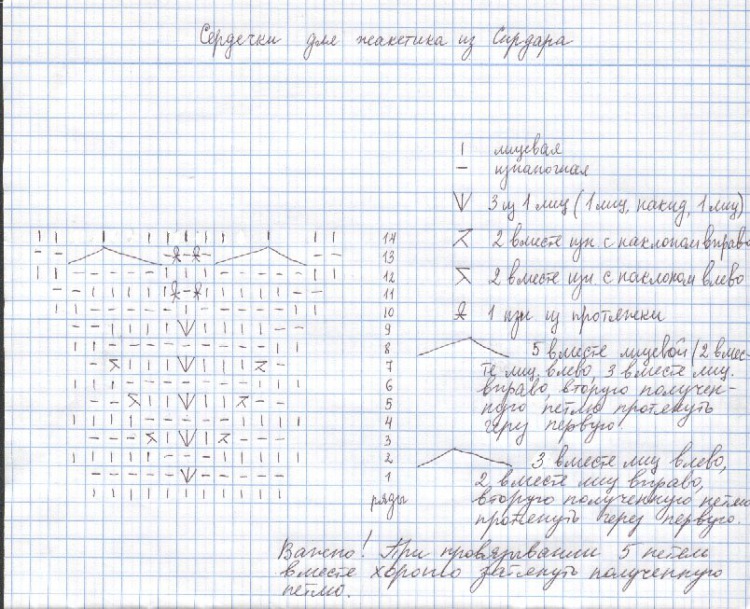 Сердечки для жакетика из Сирдара
| лицевая
- изнаночная
V 3 из 1 лиц (1 лиц, накид, 1 лиц)
2 вместе изн с наклоном вправо
2 вместе изн с наклоном влево
1 изн из протяжки
5 вместе лицевой (2 вмес-
те лиц влево, 3 вместе лиц.
вправо, вторую получен-
ную петлю протянуть
через первую
3 вместе лиц влево,
2 вместе лиц вправо,
вторую полученную петлю
протянуть через первую.
14
13
12
11
10
9
8
7
6
5
4
3
2
1
ряды
Важно! При провязывании 5 петель
вместе хорошо затянуть полученную
петлю.